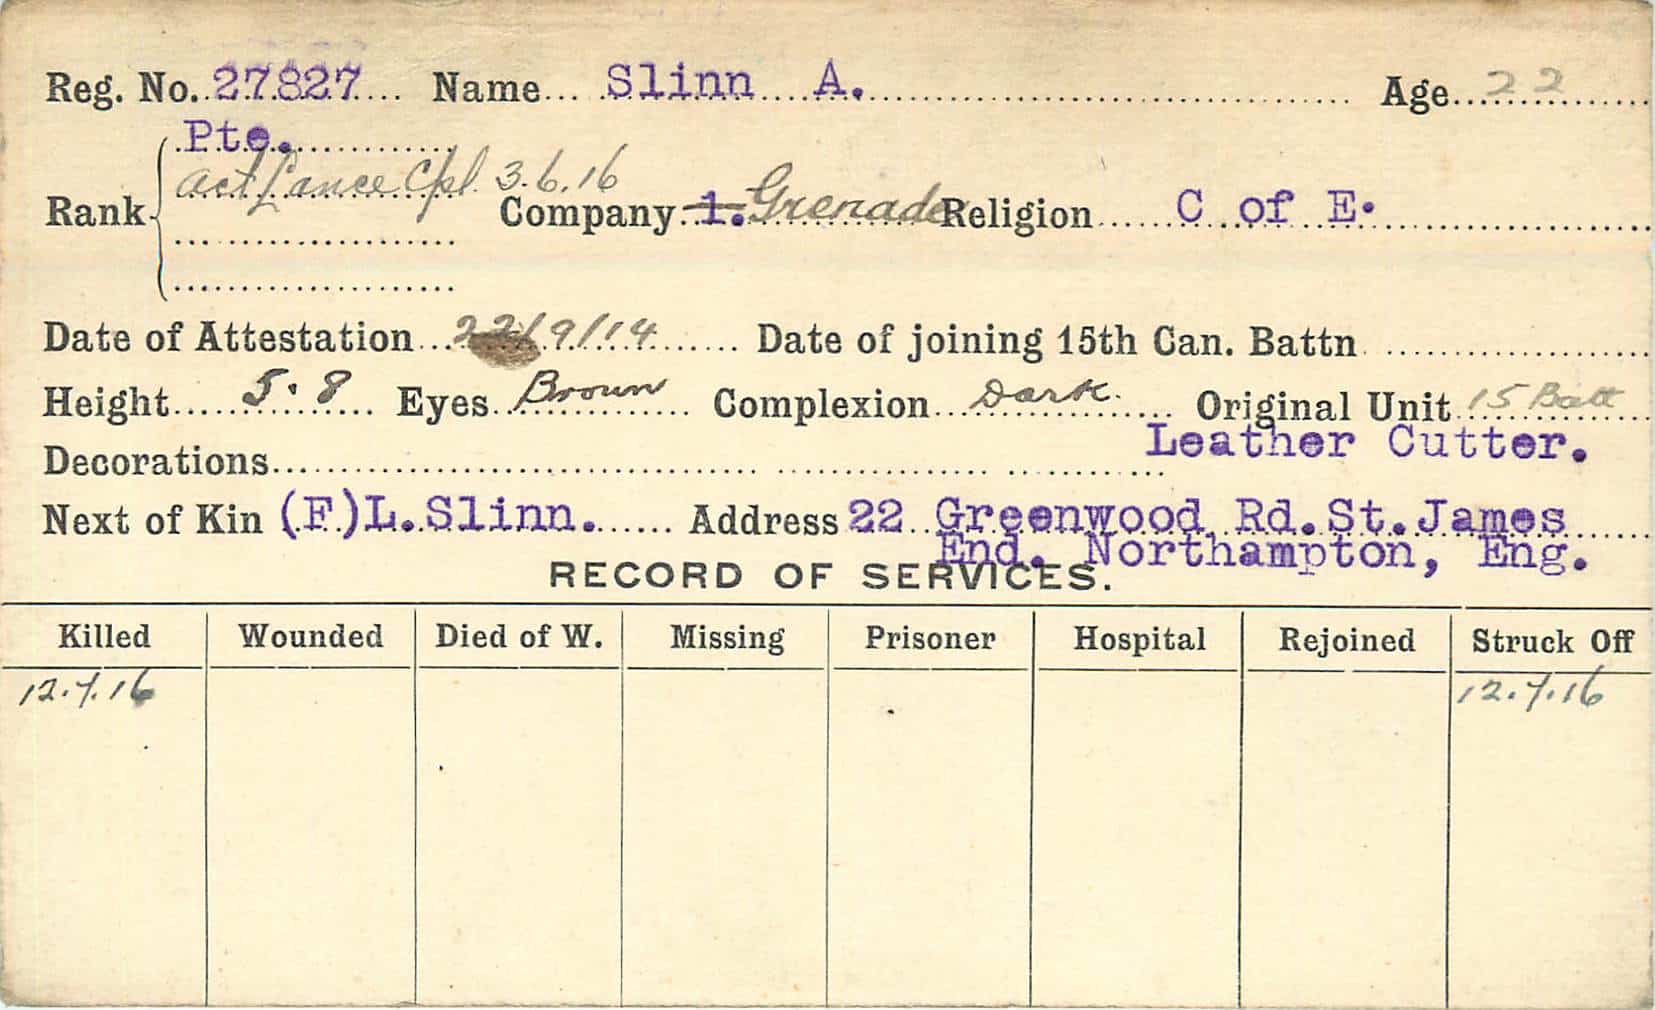 Reg. No. 27827 Name Slinn A. Age 22
Pte.
Act Lance Cpl. 3.6.16
Rank Company 1. Grenade Religion C of E.
Date of Attestation 22/9/14 Date of joining 15th Can. Battn
Height 5.8 Eyes Brown Complexion Dark. Original Unit 15 Batt
Decorations Leather Cutter.
Next of Kin (F) L. Slinn. Address 22 Greenwood Rd. St. James
End. Northampton, Eng.
RECORD OF SERVICES.
Killed Wounded Died of W. Missing Prisoner Hospital Rejoined Struck Off
12.7.16 12.7.16